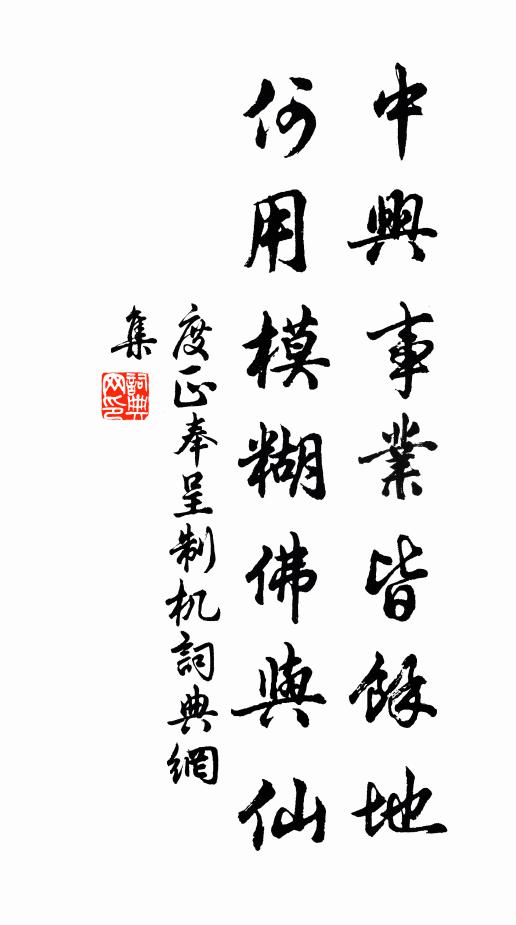 中興事業皆餘地
何用模糊佛與仙
度正奉呈制机詞典網
集
詞典網印